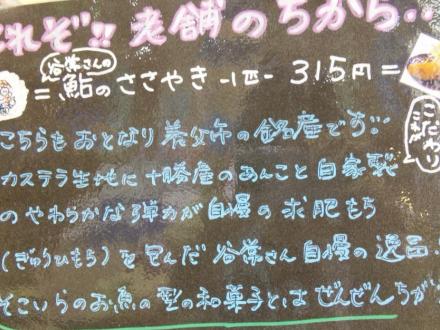 これぞ!! 老舗のちから‥
谷常さんの
= 鮎のささやき -1匹- 315円 =
こだわり
こちらも おとなり 養父市の銘産です!!
カステラ生地に 十勝産のあんこと 自家製
の やわらかな 弾力が自慢の 求肥もち
(ぎゅうひもち) を 包んだ 谷常さん 自慢の 逸品
そこいらのお魚の型の和菓子とは ぜんぜんちが